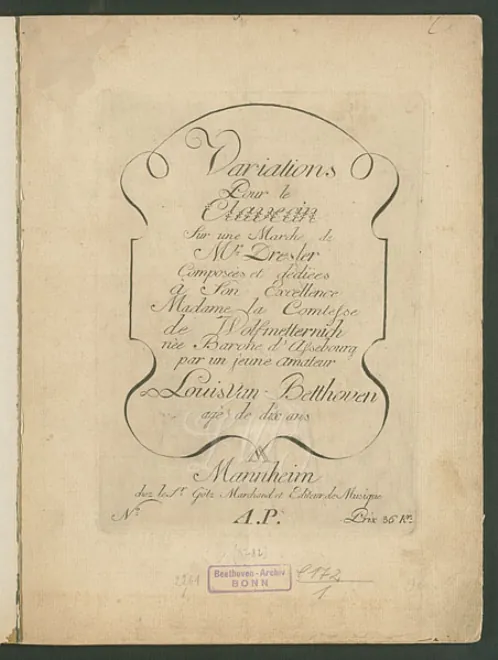 Variations
Pour le
Clavecin
Sur une Marche de
Mr. Dresler
Composées et dediées
à Son Excellence
Madame la Comtesse
de Wolfmetternich
née Baronne d'Assebourg
par un jeune amateur
Louis van Betthoven
agè de dix ans
A
Mannheim
chez le Sr. Götz Marchand et Editeur de Musique
No.
A.P.
Prix 36 Kr.
Beethoven-Archiv
BONN
C 172
1